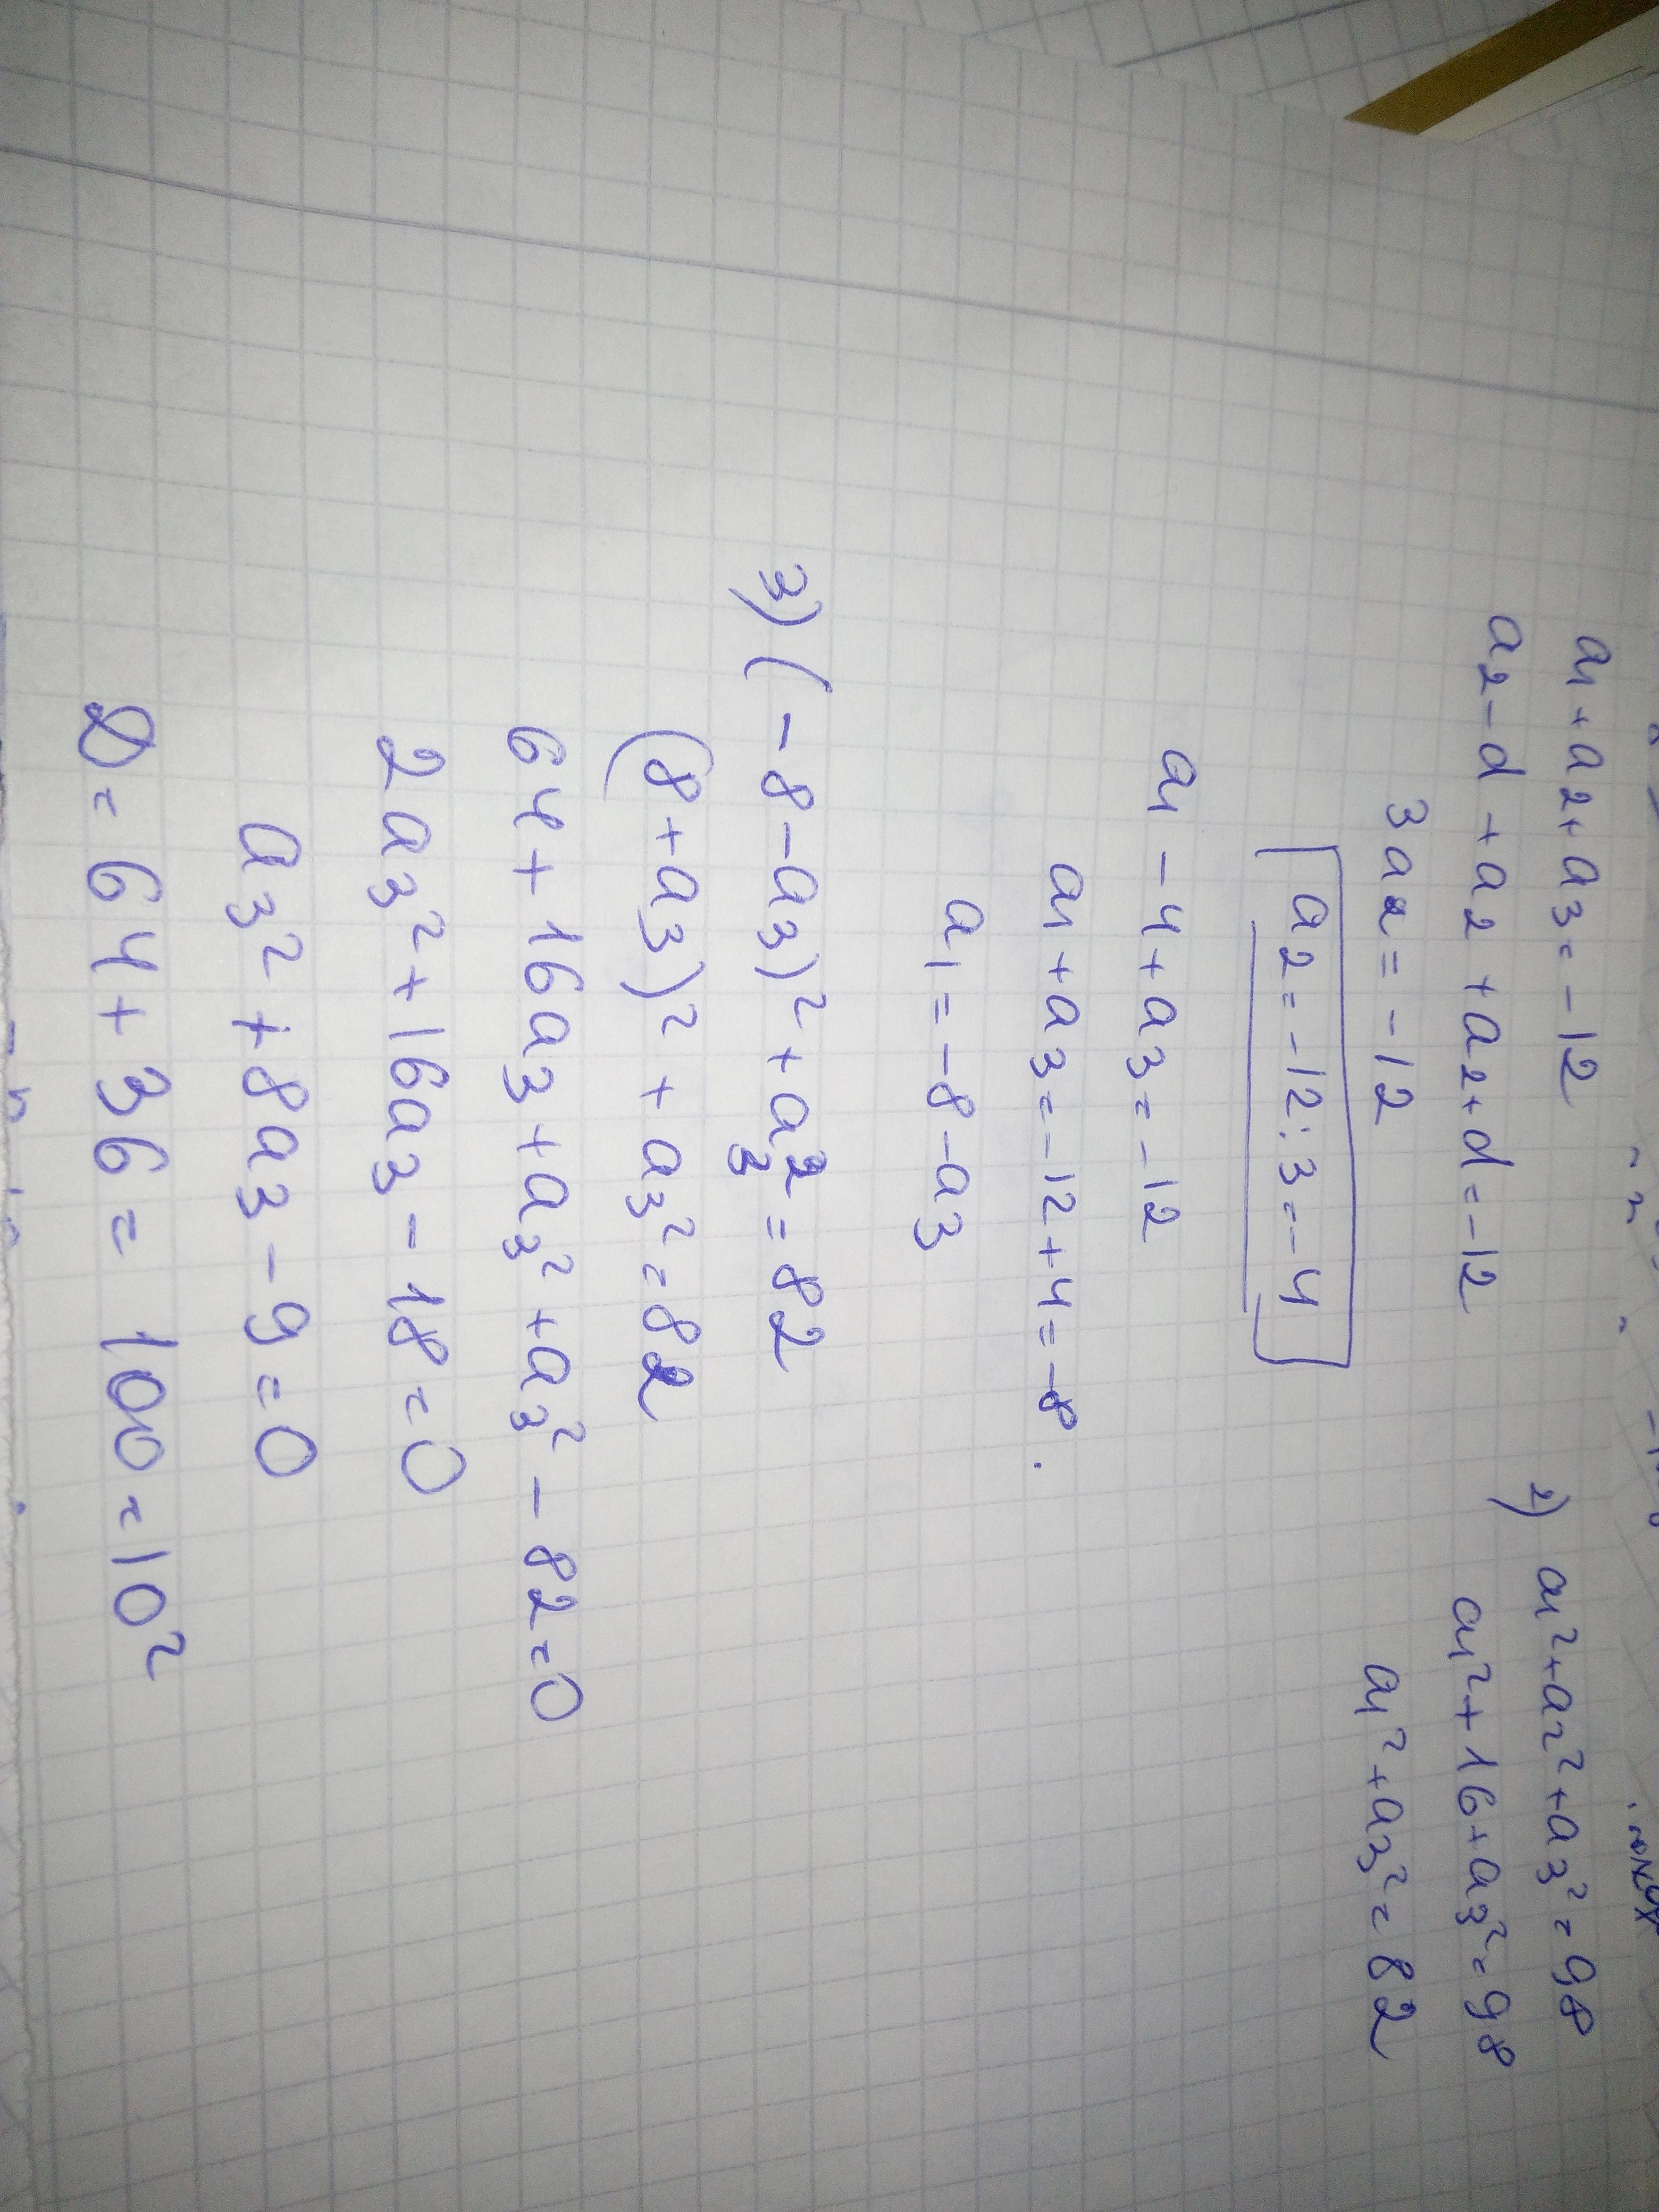 a₁+a₂+a₃=-12
a₂-d+a₂+a₂+d=-12
3a₂=-12
a₂=-12:3=-4
2) a₁²+a₂²+a₃²=98
a₁²+16+a₃²=98
a₁²+a₃²=82
a₁-4+a₃=-12
a₁+a₃=-12+4=-8.
a₁=-8-a₃
3) (-8-a₃)²+a₃²=82
(8+a₃)²+a₃²=82
64+16a₃+a₃²+a₃²-82=0
2a₃²+16a₃-18=0
a₃²+8a₃-9=0
D=64+36=100=10²